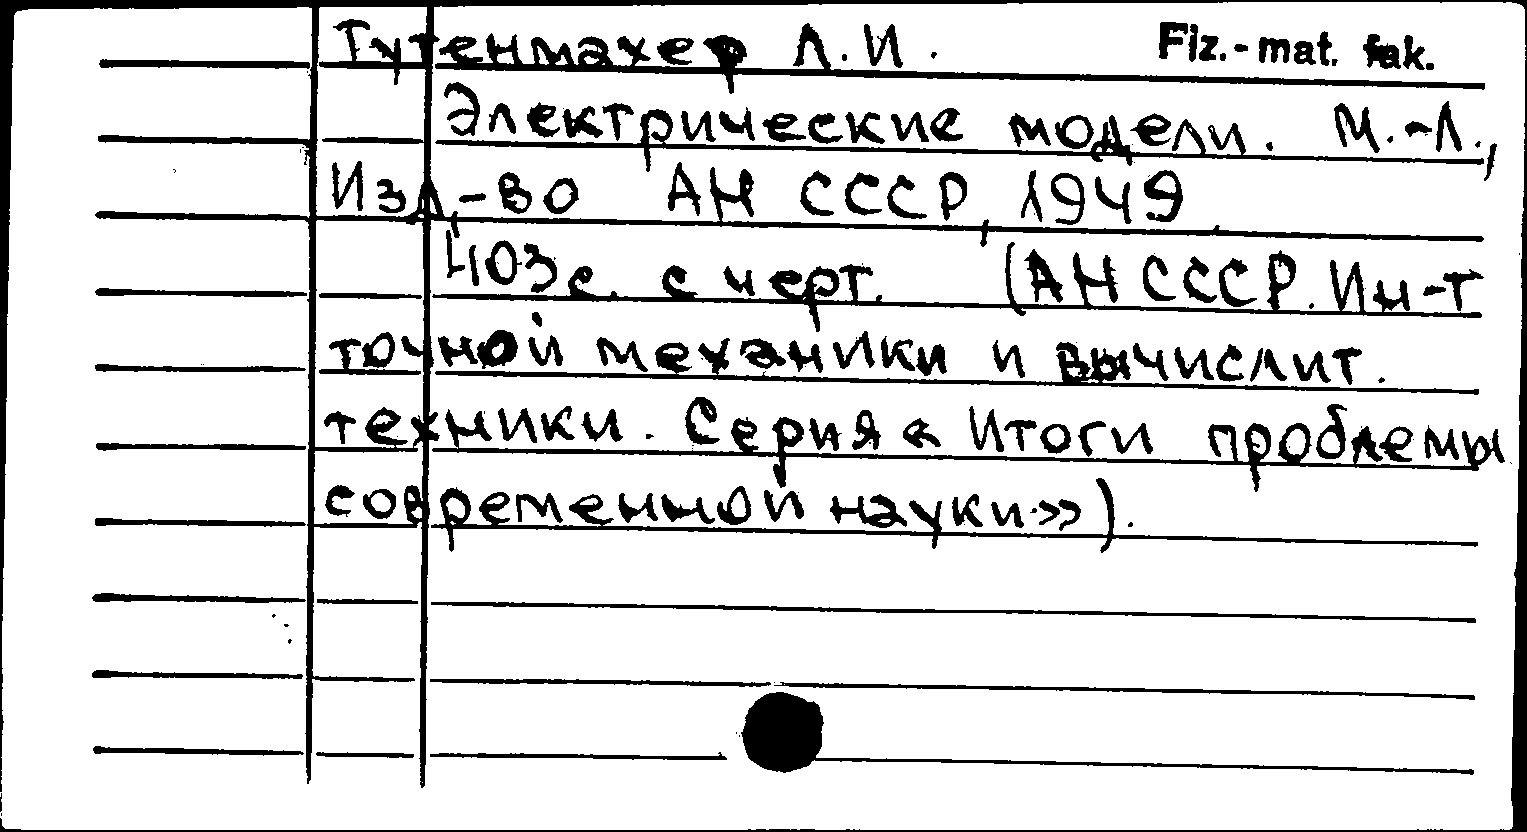 Тутенмахер Л.И. Fiz.-mat. fak.
Электрические модели. М.-Л.,
Изд-во АН СССР, 1949.
403с. с черт. (АН СССР. Ин-т
точной механики и вычислит.
техники. Серия « Итоги проблемы
современной науки»).